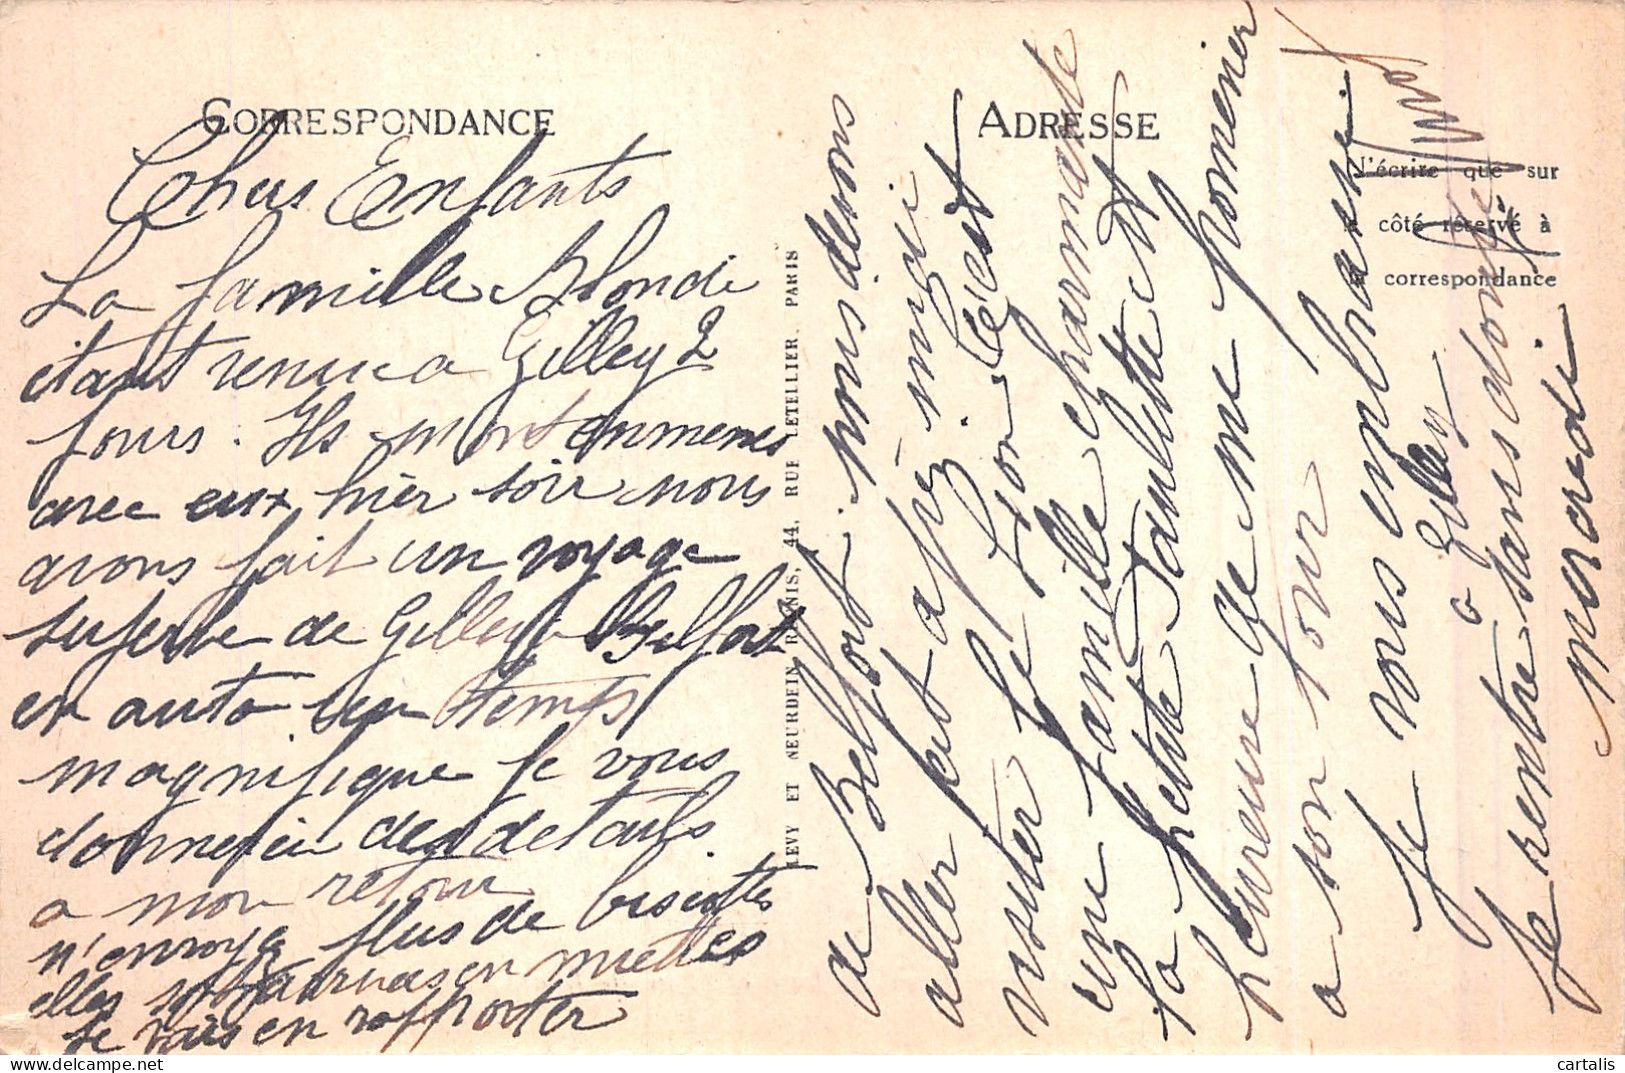 CORRESPONDANCE
Chers Enfants
La famille Blondi
étant venue a Gilley 2
jours. Ils m'ont emmenés
avec eux hier soir nous
avons fait un voyage
superbe de Gilley a Belfort
en auto un temps
magnifique je vous
donnerai des détails
a mon retour
n'envoya plus de biscottes
elles sont arrivées en miettes
je vais en rapporter
LEVY ET NEURDEIN RÉUNIS, 44, RUE LETELLIER, PARIS
ADRESSE
N'écrire que sur
le côté réservé à
la correspondance
de Belfort. nous devons
aller cet apré midi
visiter le Lion. C'est
une famille charmante
la petite Paulette et
heureuse de me promener
a son tour
Je vous embrasse
a Gilley
Je rentre sans doute
mercredi